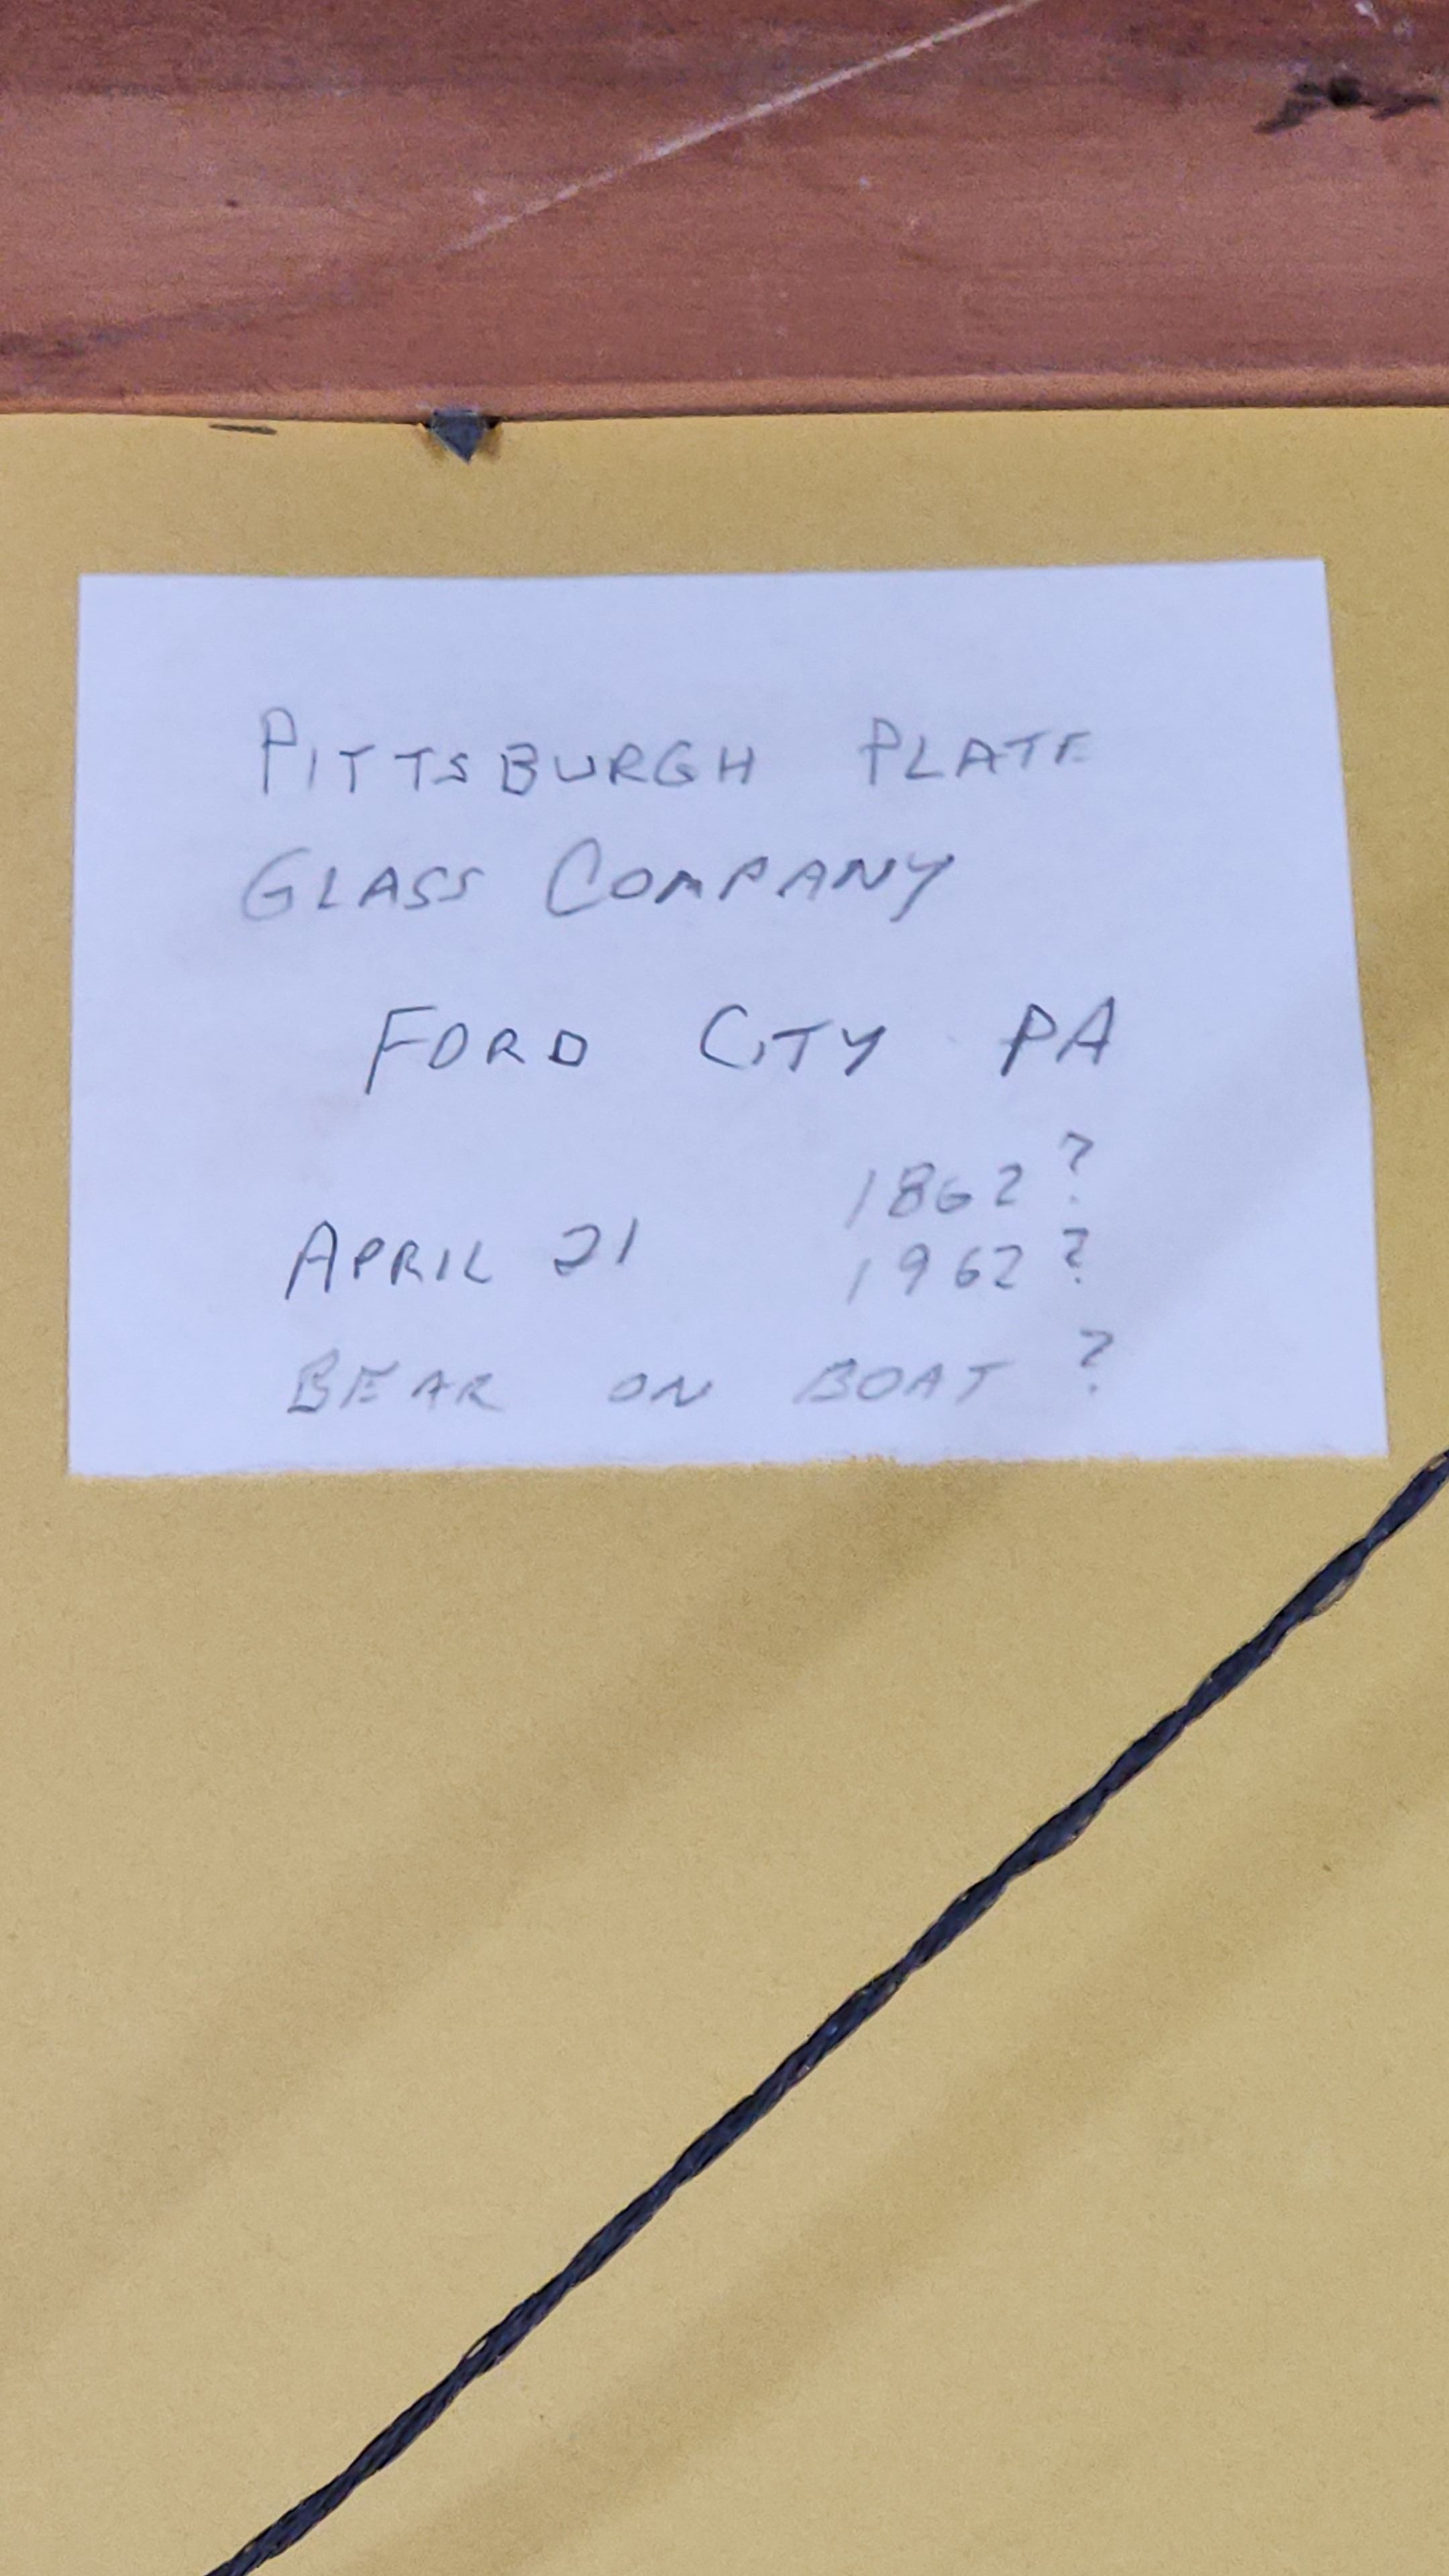 PITTSBURGH PLATE
GLASS COMPANY
FORD CITY PA
1862?
APRIL 21
1962?
BEAR ON BOAT?